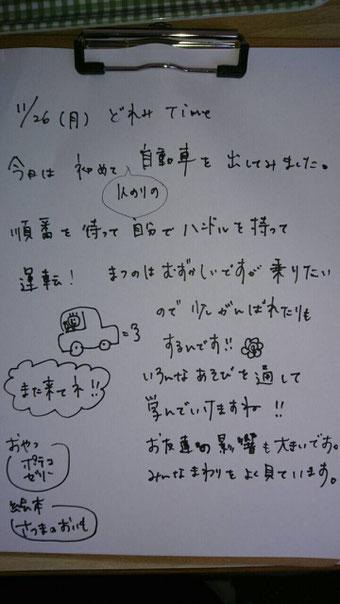 11/26(月) どれみ Time
今日は 初めて 自動車を 出してみました。
1人のりの
順番を 待って 自分で ハンドルを 持って
運転! まつのは むずかしいですが 乗りたい
ので 少しがんばれたりも
するんです!!
また来てネ!!
いろんな あそびを 通して
学んでいけますね!!
おやつ
ポテコ
ゼリー
お友達の 影響も 大きいです。
みんな まわりを よく見ています。
絵本
さつまのおいも